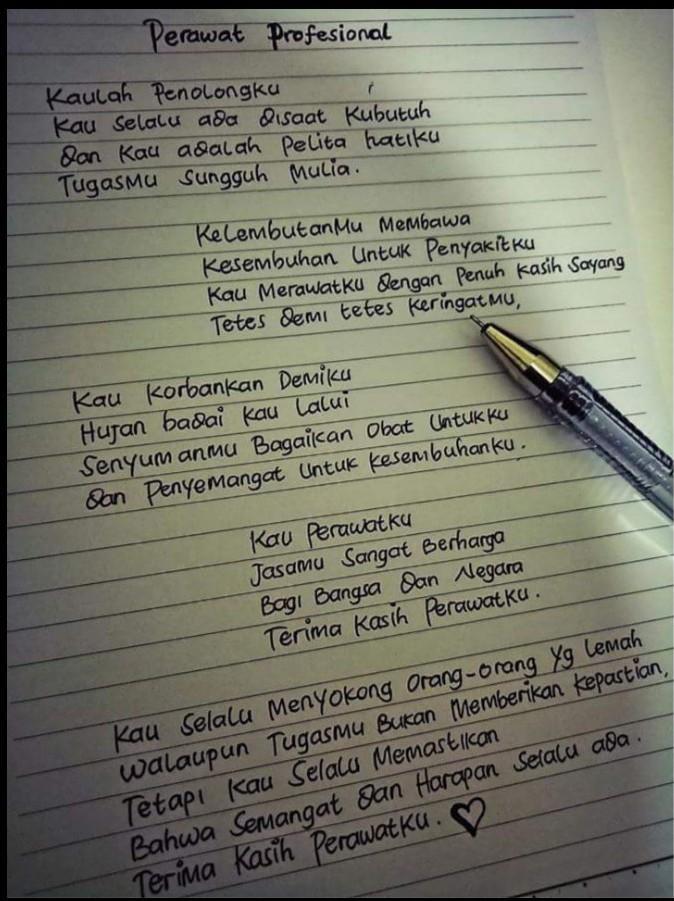 Perawat Profesional
Kaulah Penolongku
Kau Selalu ada disaat Kubutuh
dan Kau adalah Pelita hatiku
TugasMu Sungguh Mulia.
KelembutanMu Membawa
Kesembuhan Untuk Penyakitku
Kau Merawatku dengan Penuh Kasih Sayang
Tetes demi tetes KeringatMu,
Kau Korbankan Demiku
Hujan badai Kau Lalui
Senyumanmu Bagaikan Obat Untukku
dan Penyemangat Untuk Kesembuhanku.
Kau Perawatku
Jasamu Sangat Berharga
Bagi Bangsa dan Negara
Terima Kasih Perawatku.
Kau Selalu Menyokong Orang-orang Yg Lemah
Walaupun Tugasmu Bukan Memberikan Kepastian,
Tetapi Kau Selalu Memastikan
Bahwa Semangat dan Harapan Selalu ada.
Terima Kasih Perawatku. ♡